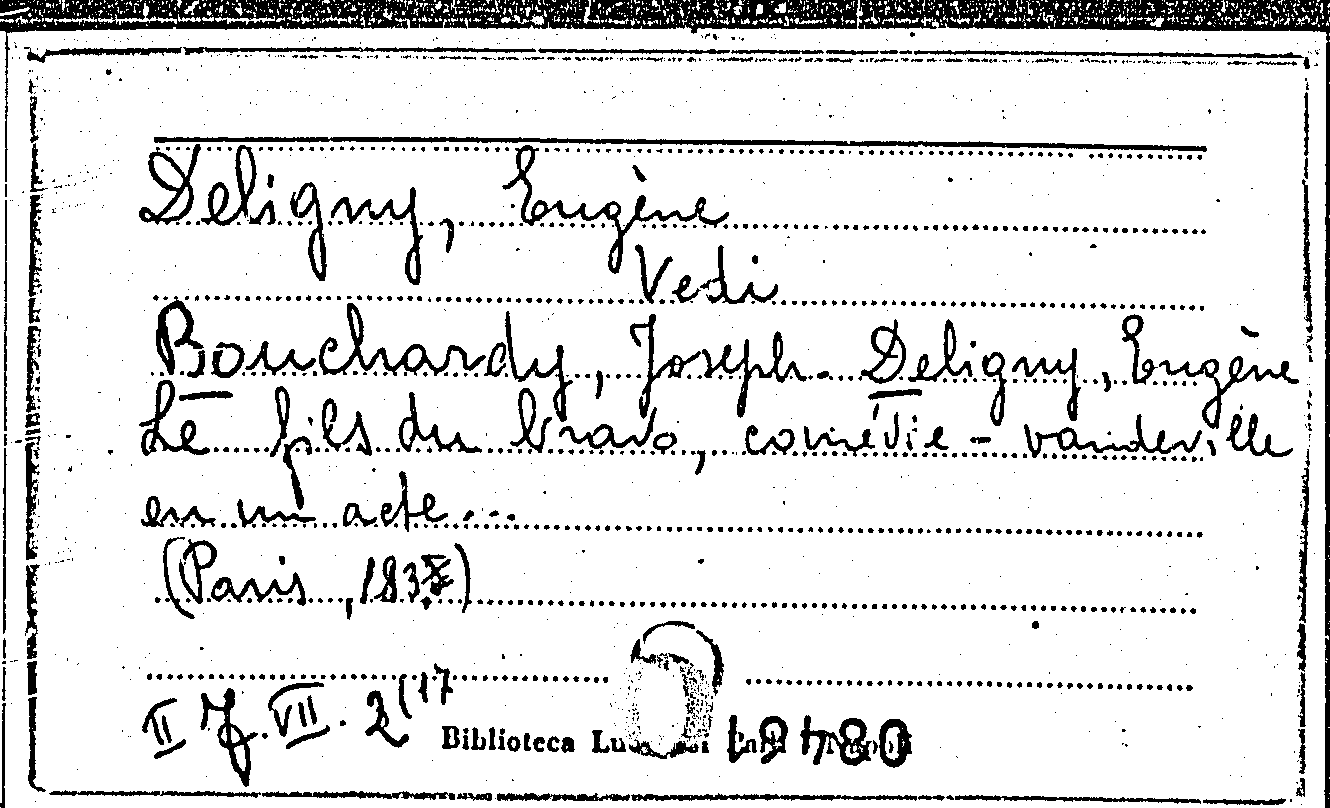 Deligny, Eugène
Vedi
Bouchardy, Joseph. Deligny, Eugène
Le fils du bravo, comédie - vaudeville
en un acte...
(Paris, 183
II VII. 2(17
Biblioteca 19480